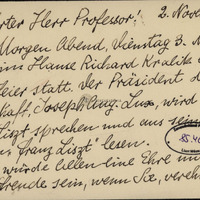 rter Herr Professor! 2. Nove
Morgen Abend, Dienstag 3. N
im Hause Richard Kralik
feier statt. Der Präsident d
haft, Joseph Aug. Lux, wird
Liszt sprechen und aus
"Franz Liszt" lesen.
würde eine Ehre un
Freude sein, wenn Sie, vereh